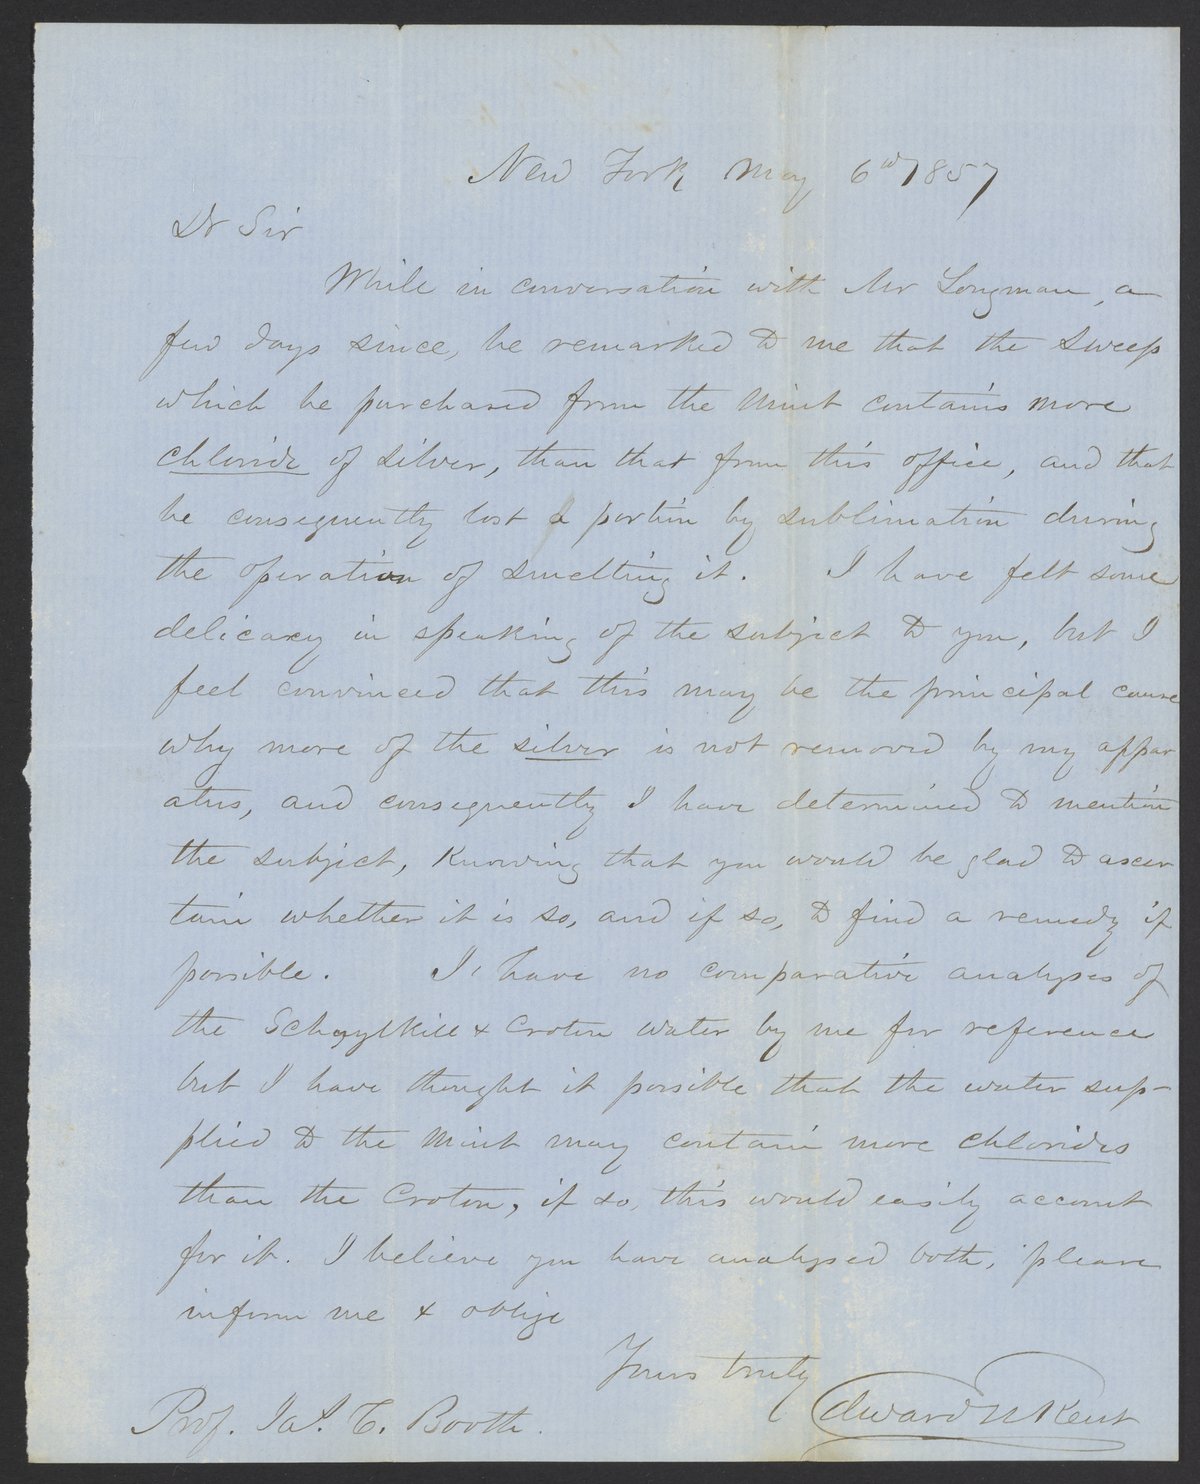 New York May 6th 1857
Dr Sir
While in conversation with Mr Longman, a
few days since, he remarked to me that the Sweep
which he purchased from the Mint contains more
chloride of silver, than that from this office, and that
he consequently lost a portion by sublimation during
the operation of smelting it. I have felt some
delicacy in speaking of the subject to you, but I
feel convinced that this may be the principal cause
why more of the silver is not removed by my appar
atus, and consequently I have determined to mention
the subject, knowing that you would be glad to ascer
tain whether it is so, and if so, to find a remedy if
possible. I have no comparative analyses of
the Schuylkill & Croton water by me for reference
but I have thought it possible that the water sup-
plied to the Mint may contain more chlorides
than the Croton, if so, this would easily account
for it. I believe you have analysed both, please
inform me & oblige
Yours truly
Edward N Kent
Prof. Jas. C. Booth.